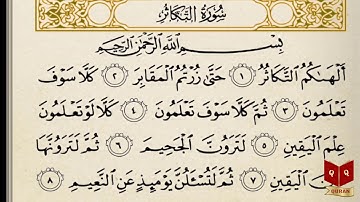 سُورَةُ التَّكَاثُرِ
بِسْمِ اللَّهِ الرَّحْمَٰنِ الرَّحِيمِ
أَلْهَاكُمُ التَّكَاثُرُ ١ حَتَّىٰ زُرْتُمُ الْمَقَابِرَ ٢ كَلَّا سَوْفَ
تَعْلَمُونَ ٣ ثُمَّ كَلَّا سَوْفَ تَعْلَمُونَ ٤ كَلَّا لَوْ تَعْلَمُونَ
عِلْمَ الْيَقِينِ ٥ لَتَرَوُنَّ الْجَحِيمَ ٦ ثُمَّ لَتَرَوُنَّهَا
الْيَقِينِ ٧ ثُمَّ لَتُسْأَلُنَّ يَوْمَئِذٍ عَنِ النَّعِيمِ ٨
QURAN